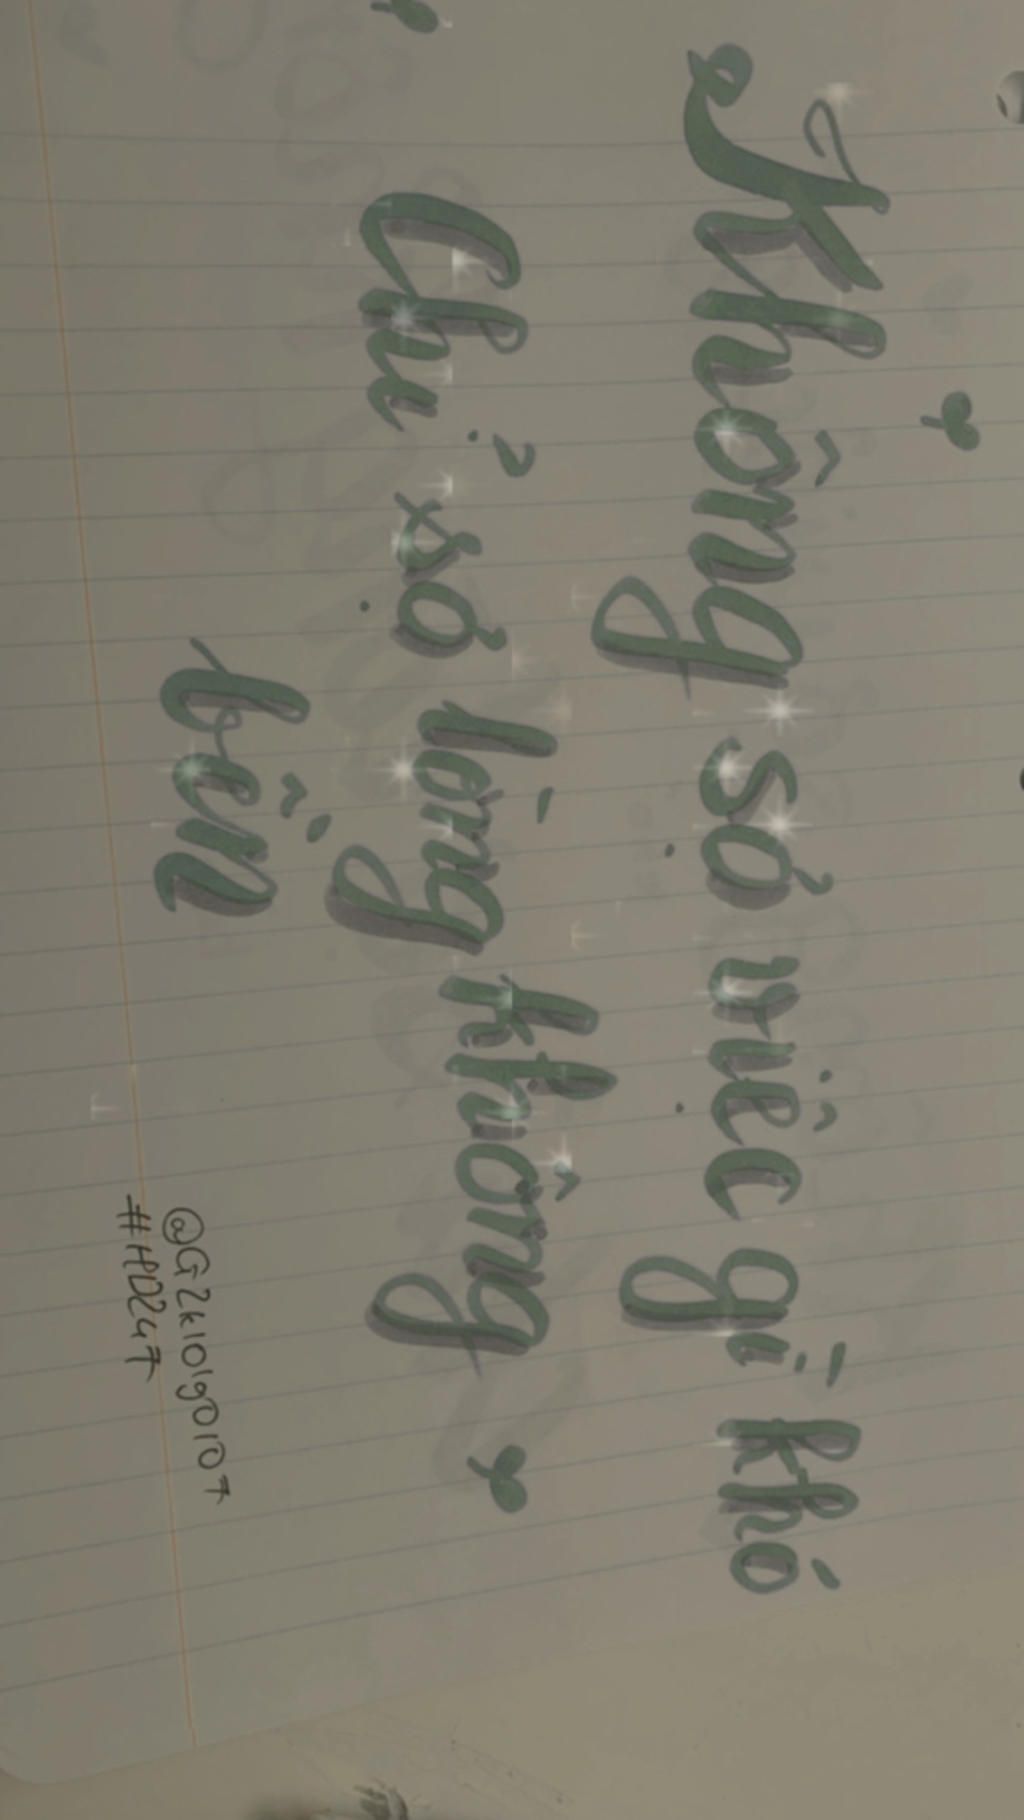 Không sợ việc gì khó
Chỉ sợ lòng không
bền
@G2k101go107
#HD247